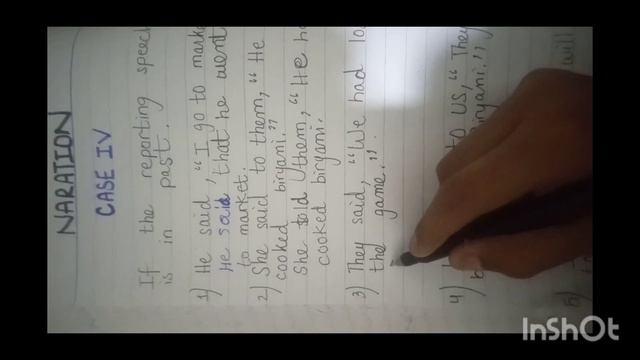 NARATION
CASE IV
If the reporting speech
is in past.
1) He said, "I go to market
He said that he went
to market.
2) She said to them, "He
cooked biryani."
She told them, "He ha
cooked biryani.
3) They said, "We had lo
the game."
4) to US, "They
biryani."
5) will
InShOt